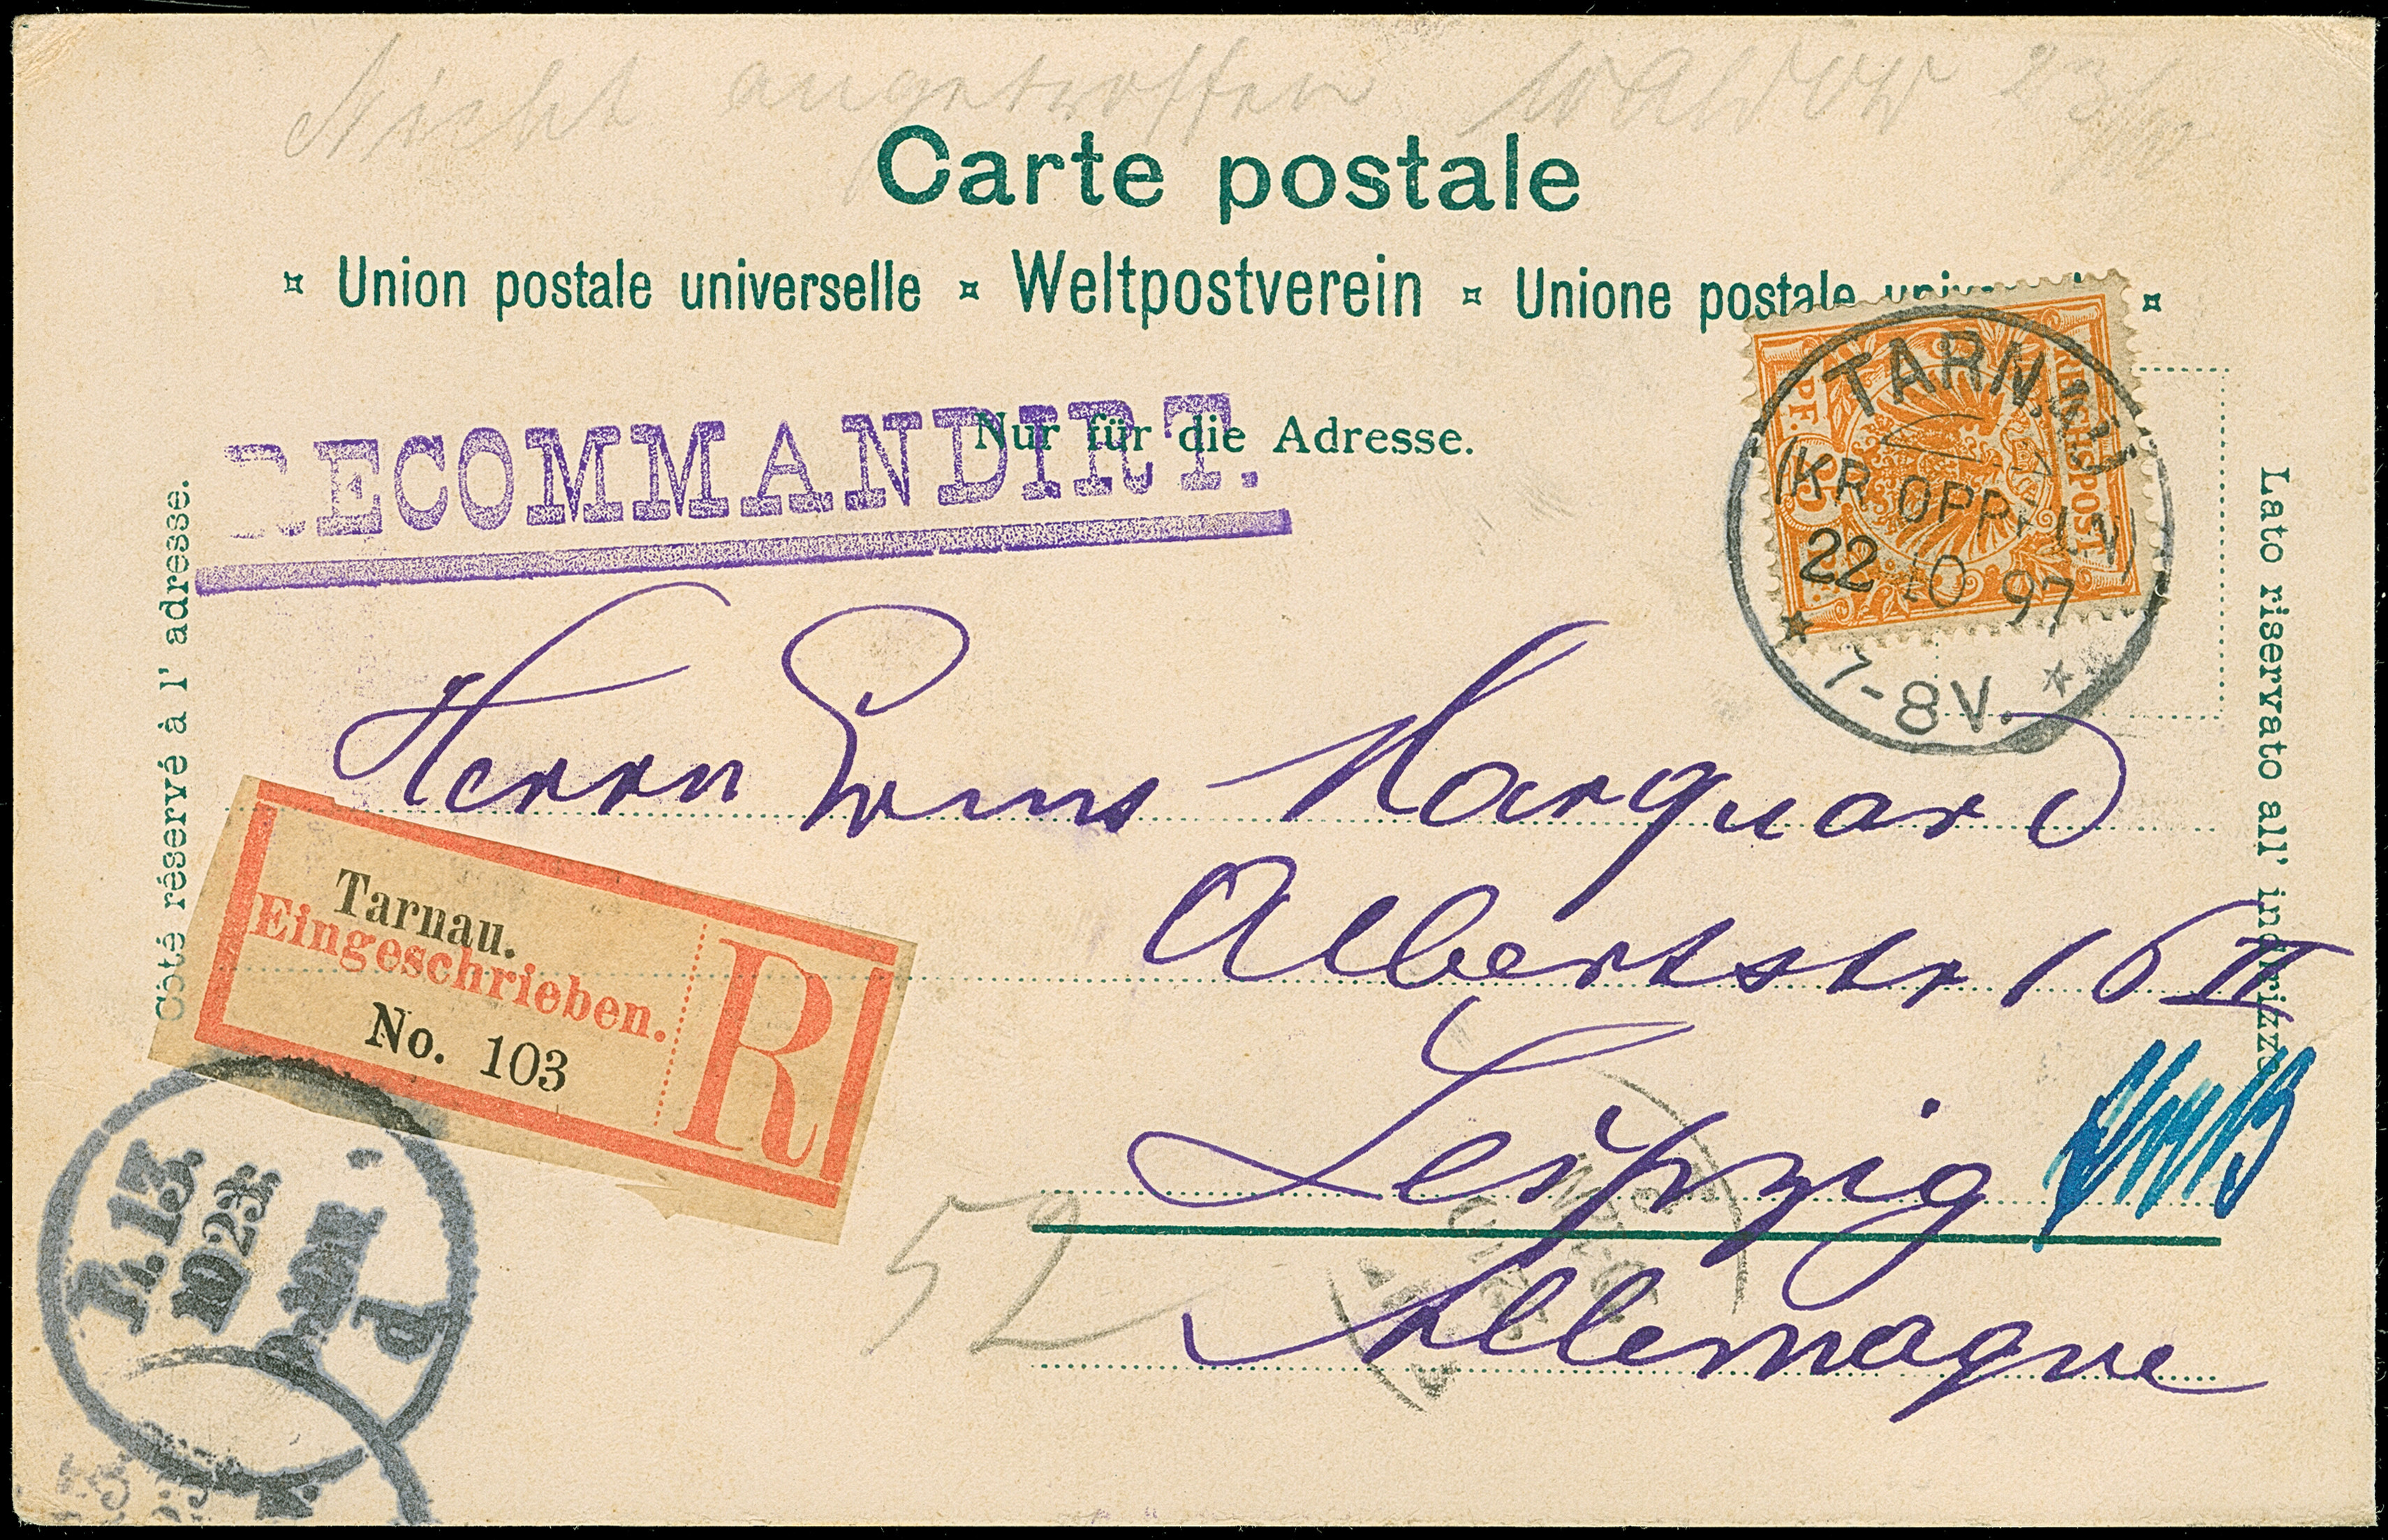 Nicht angetroffen 23/10
Carte postale
Union postale universelle Weltpostverein Unione postale
RECOMMANDIRT.
Nur für die Adresse.
REICHSPOST
25 PF.
TARNAU
(KR. OPPELN)
22 10 97
7-8V.
Côté réservé à l' adresse.
Lato riservato all' indirizzo
Herrn Marquard
Albertstr 16 II
Leipzig
Allemagne
Tarnau.
Eingeschrieben.
No. 103
R
52